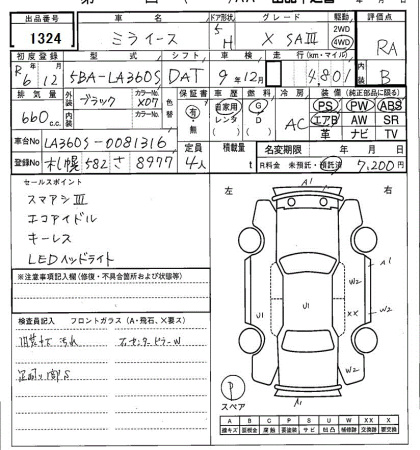 出品番号 車名 ドア形状 グレード 駆動 評価点
1324 ミライース 5 H X SAⅢ 2WD 4WD RA
初度登録 型式 シフト 車検 走行(km・マイル) 内装 B
R6 12 5BA-LA360S DAT 9年12月 4,801
排気量 外装色 カラーNo. 色替 保証書 車歴 燃料 冷房 装備(純正部品に限る)
660c.c. ブラック X07 有・無 自家用 レンタ G D AC PS PW ABS
内装色 カラーNo. エアB AW SR
革 ナビ TV
車台No LA360S-0081316 定員 積載量 名変期限 年 月 日
登録No 札幌 582 さ 8977 4人 t R料金 未預託・預託済 7,200円
セールスポイント
スマアシⅢ
エコアイドル
キーレス
LEDヘッドライト
※注意事項記入欄(修復・不具合箇所および状態等)
検査員記入 フロントガラス(A・飛石、×要ス)
内装 汚れ 右センターピラーW
足回り部S
左 右
A1
A1
W2
U1 U1 XX
W2
A1
P
スペア
A B C P S U W X XX ×
線キズ 要板金 腐触 要塗装 サビ 凹凸 補修跡 要交換 交換跡 要交換